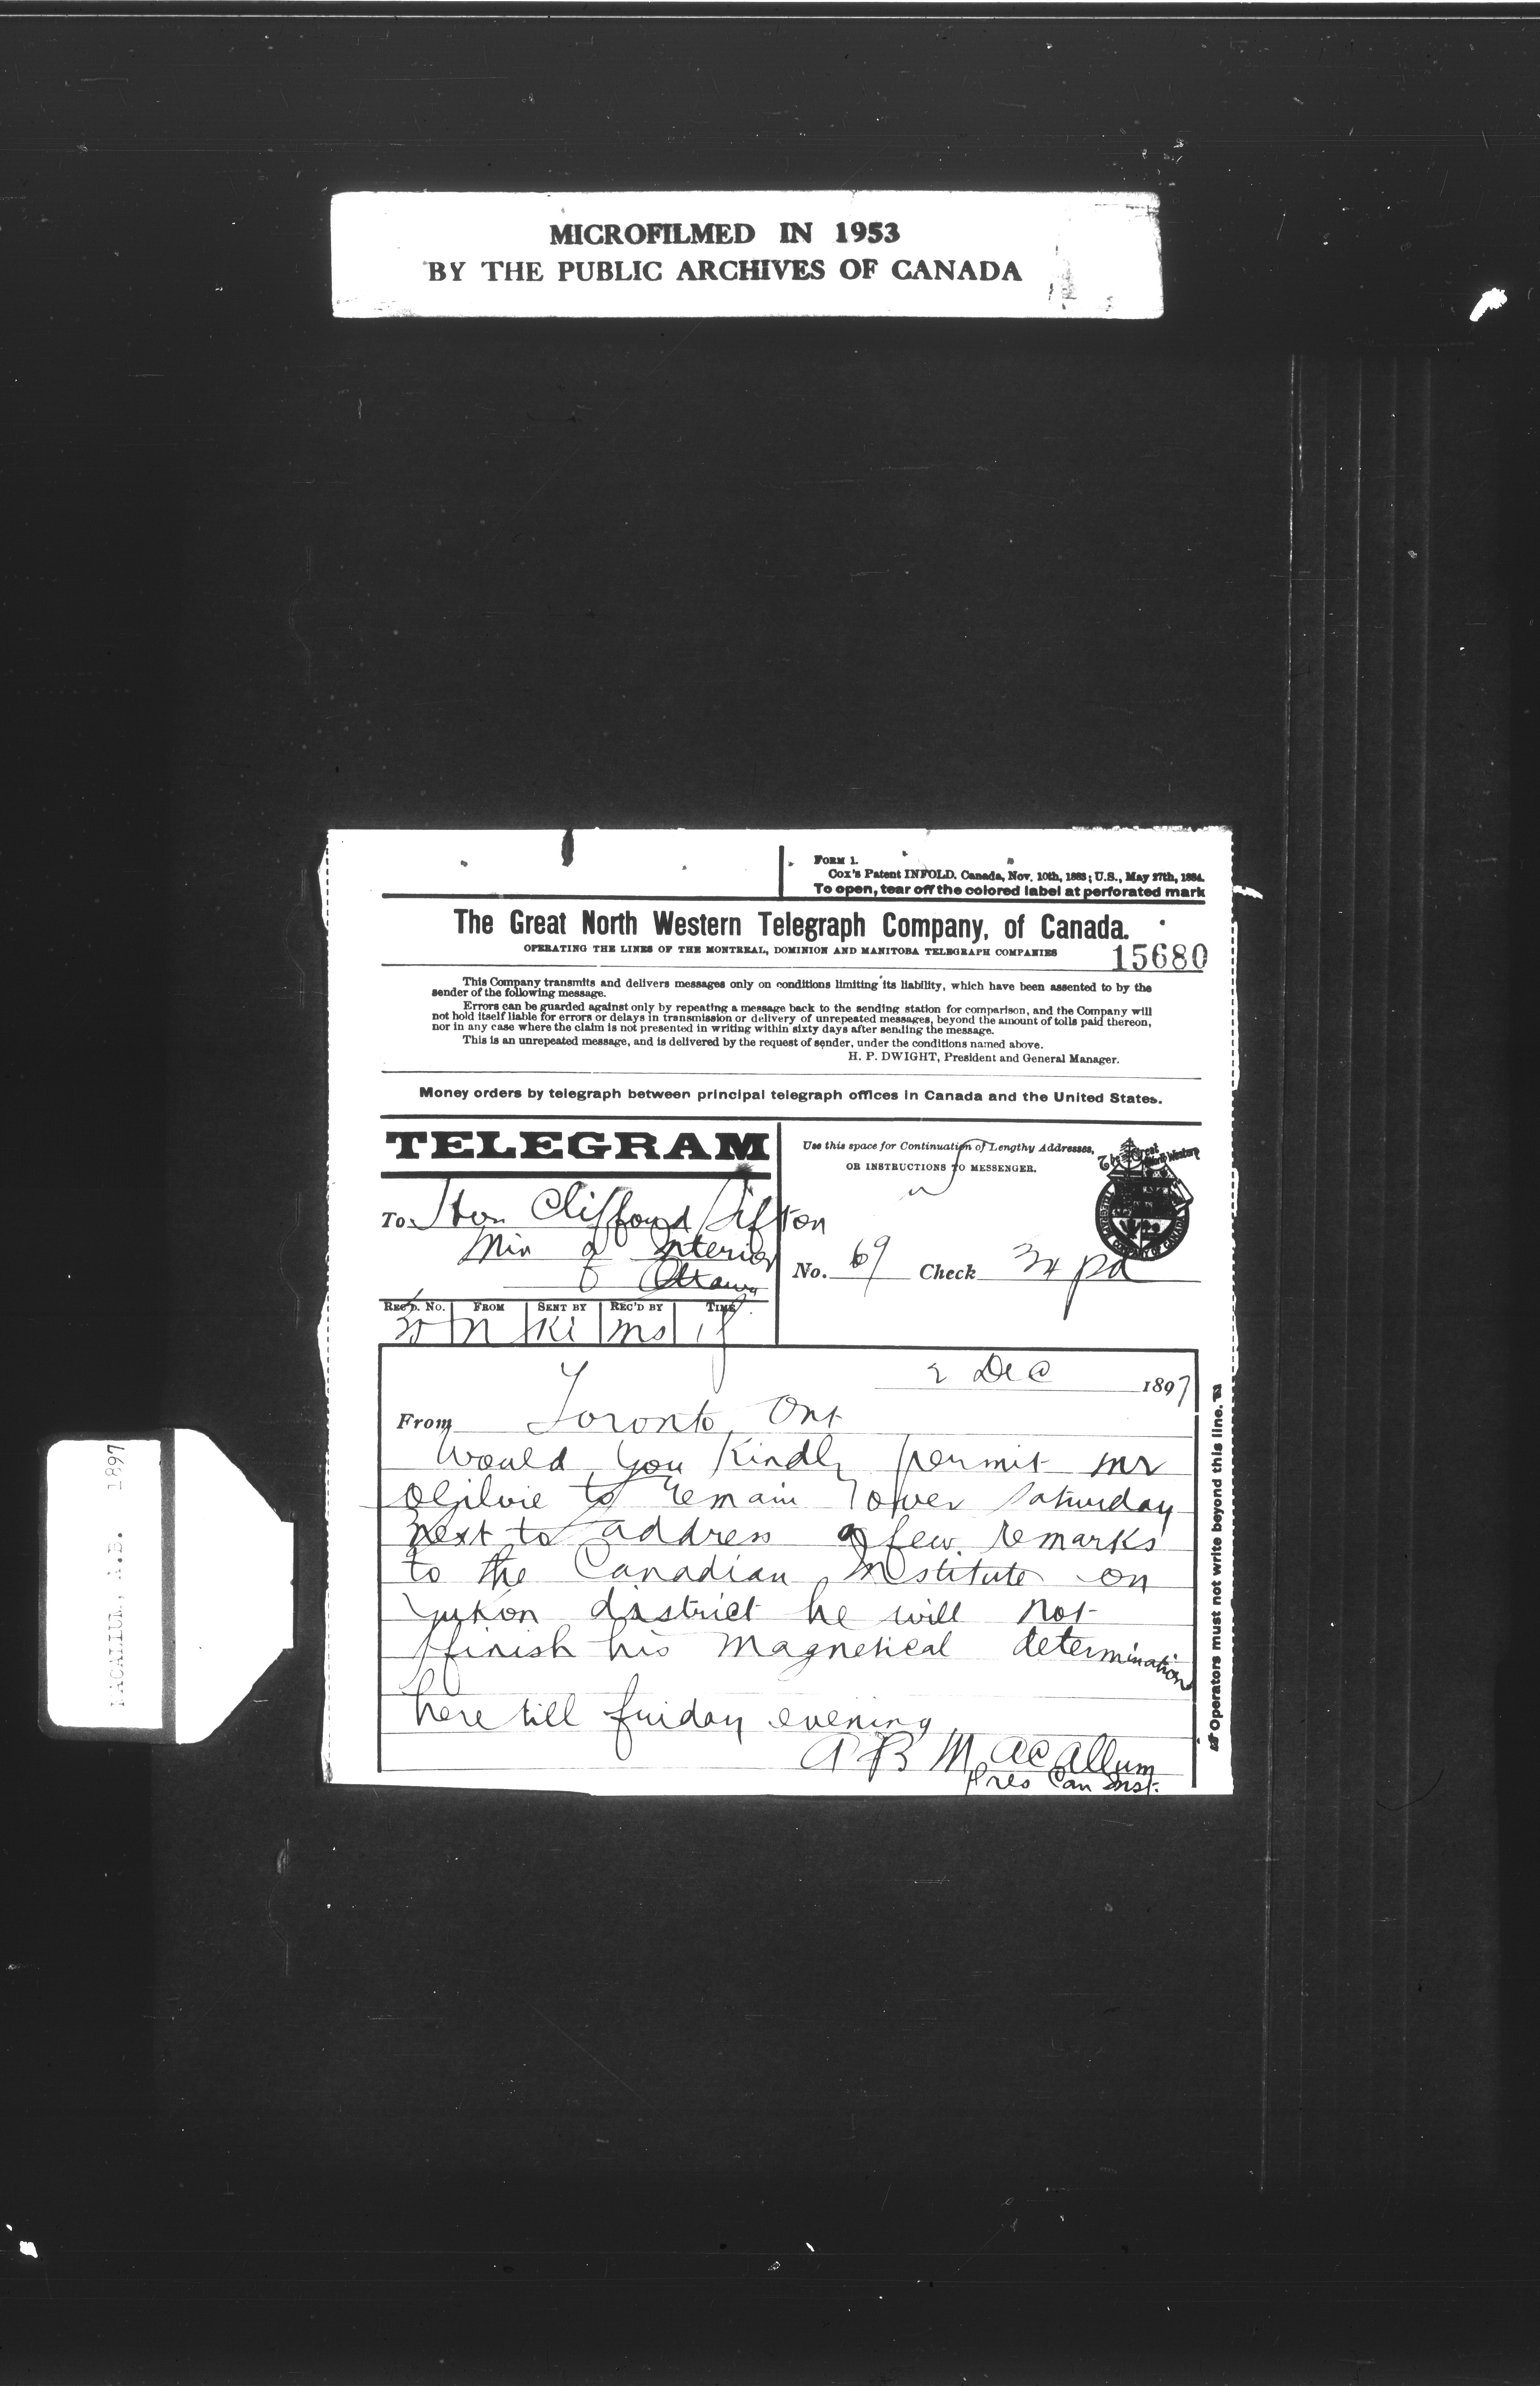 MICROFILMED IN 1953
BY THE PUBLIC ARCHIVES OF CANADA
FORM 1.
Cox's Patent INFOLD. Canada, Nov. 10th, 1883; U.S., May 27th, 1884.
To open, tear off the colored label at perforated mark
The Great North Western Telegraph Company, of Canada.
OPERATING THE LINES OF THE MONTREAL, DOMINION AND MANITOBA TELEGRAPH COMPANIES
15680
This Company transmits and delivers messages only on conditions limiting its liability, which have been assented to by the
sender of the following message.
Errors can be guarded against only by repeating a message back to the sending station for comparison, and the Company will
not hold itself liable for errors or delays in transmission or delivery of unrepeated messages, beyond the amount of tolls paid thereon,
nor in any case where the claim is not presented in writing within sixty days after sending the message.
This is an unrepeated message, and is delivered by the request of sender, under the conditions named above.
H. P. DWIGHT, President and General Manager.
Money orders by telegraph between principal telegraph offices in Canada and the United States.
TELEGRAM
Use this space for Continuation of Lengthy Addresses,
OR INSTRUCTIONS TO MESSENGER.
The Great
North Western
TELEGRAPH COMPANY OF CANADA
To Hon Clifford Sifton
Min of Interior
Ottawa
No. 69 Check 34 pd
REC'D. NO. FROM SENT BY REC'D BY TIME
N Ki Ms
2 Dec 1897
From Toronto Ont
Would you Kindly permit mr
Ogilvie to remain over Saturday
next to address a few remarks
to the Canadian Institute on
Yukon district he will not
finish his magnetical determinations
here till friday evening
A B Macallum
Pres Can Inst.
Operators must not write beyond this line.
MACALLUM, A.B. 1897